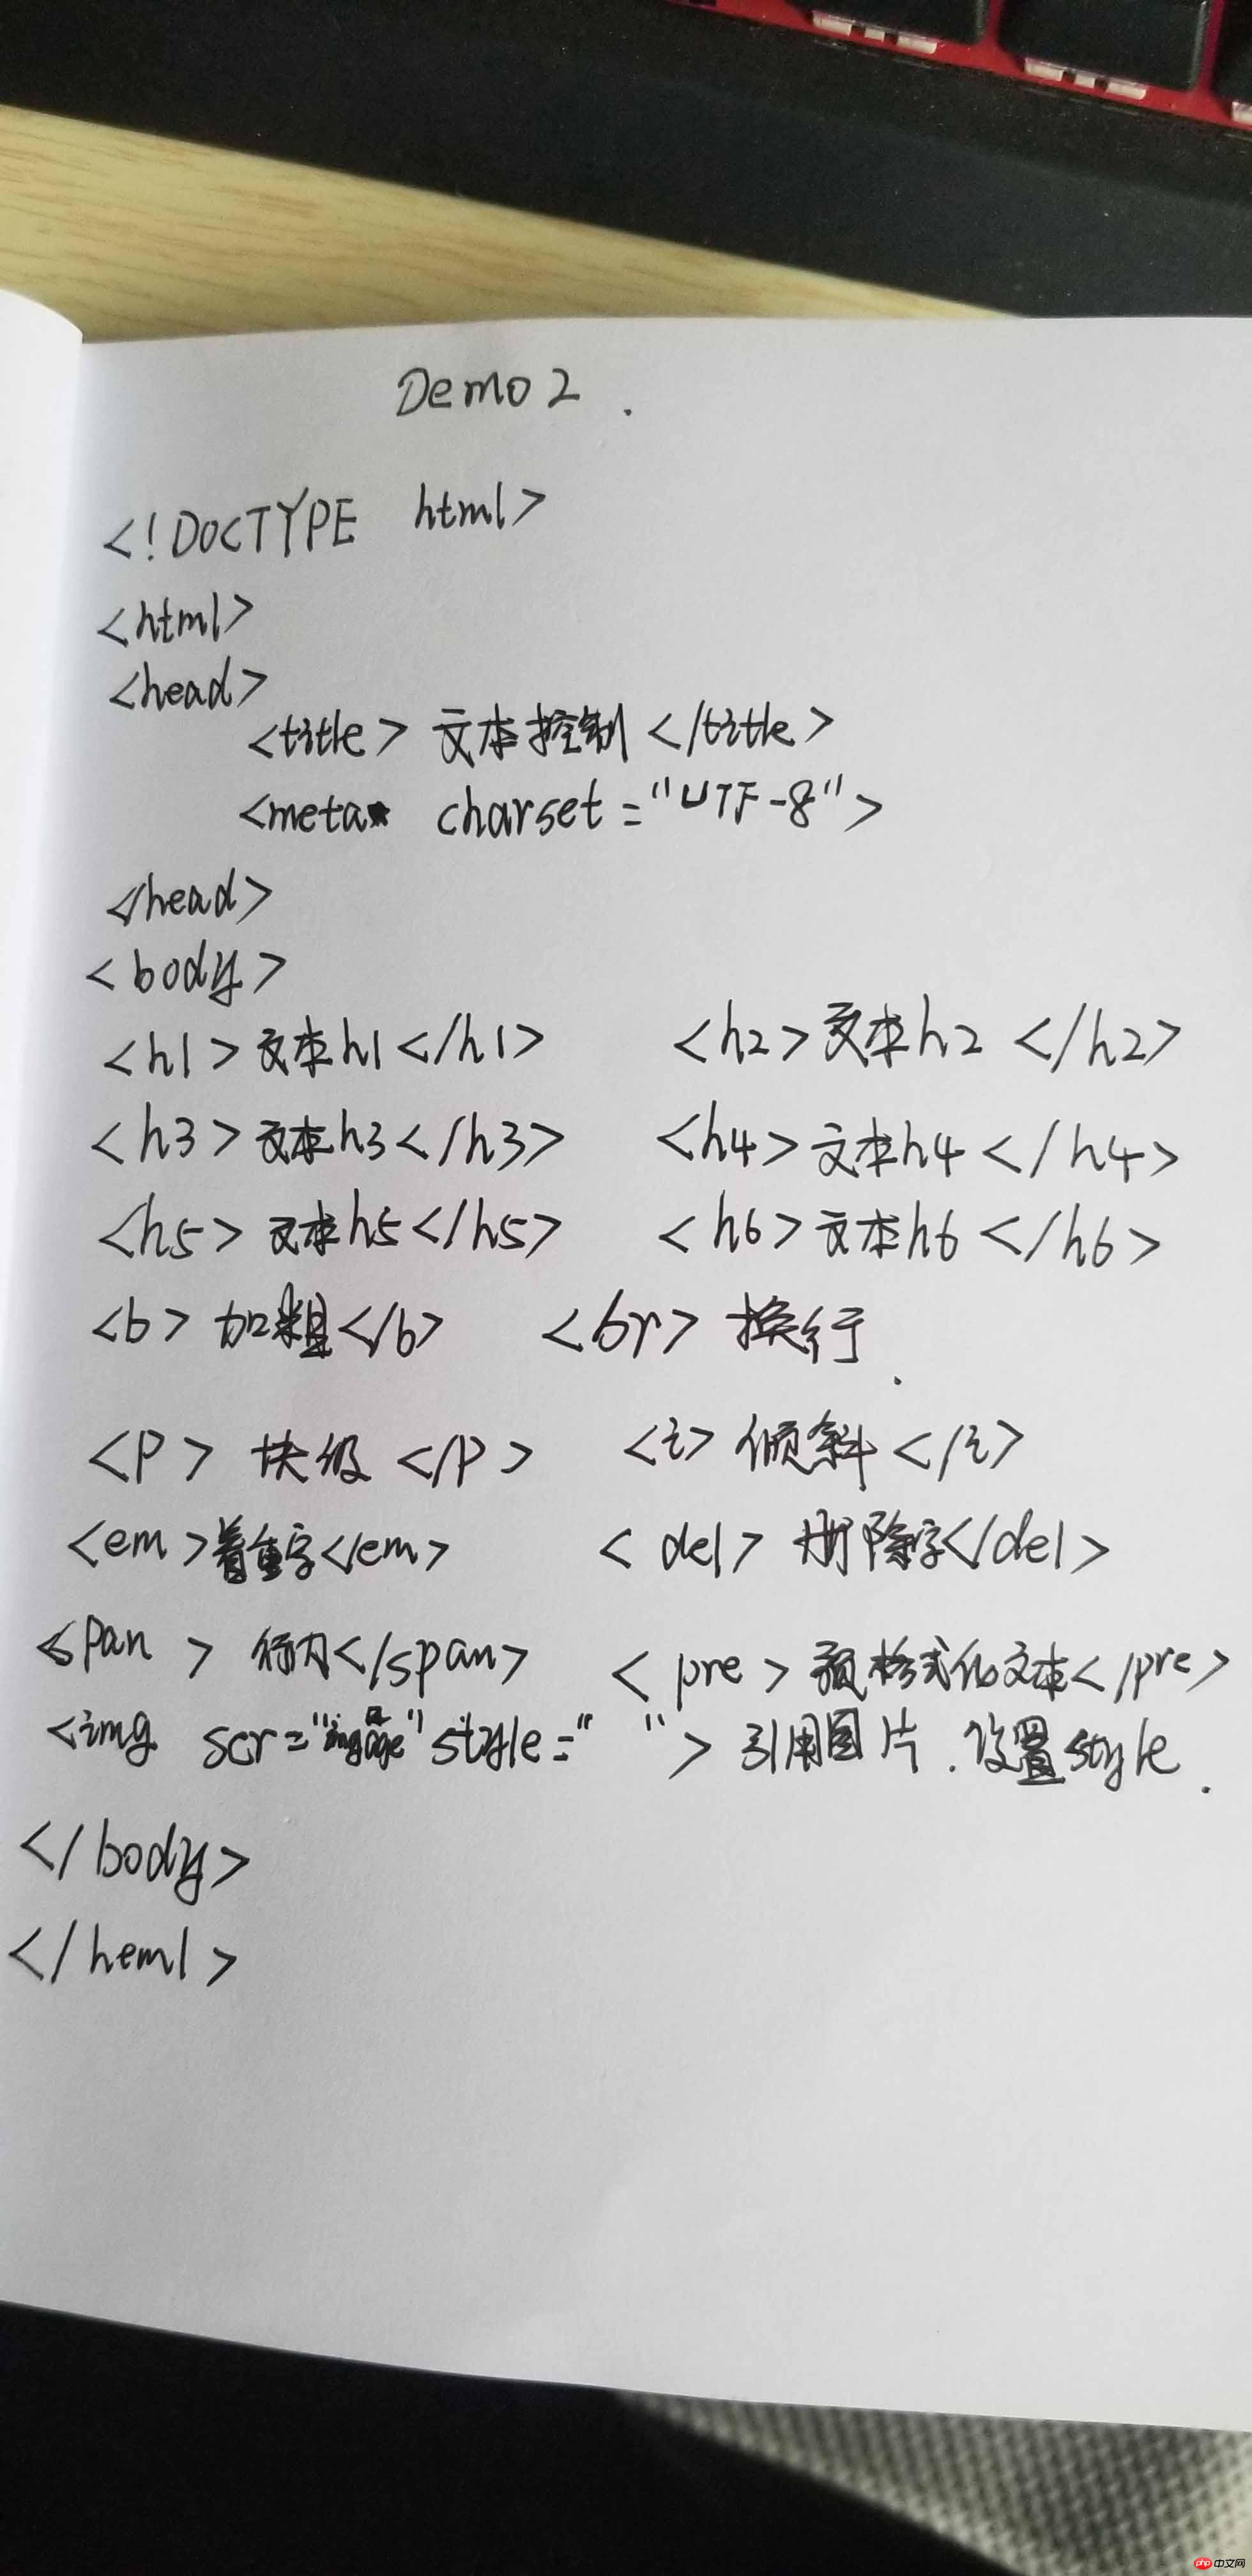 Demo 2 .
<!DOCTYPE html>
<html>
<head>
<title> 文本控制 </title>
<meta charset="UTF-8">
</head>
<body>
<h1>文本h1</h1> <h2>文本h2 </h2>
<h3>文本h3</h3> <h4>文本h4 </h4>
<h5>文本h5</h5> <h6>文本h6 </h6>
<b> 加粗</b> <br> 换行.
<p> 块级 </p> <i> 倾斜 </i>
<em>着重字</em> <del> 删除字</del>
<span> 行内</span> <pre>预格式化文本</pre>
<img scr=" " style=" "> 引用图片.设置style.
</body>
</heml>
php 中文网